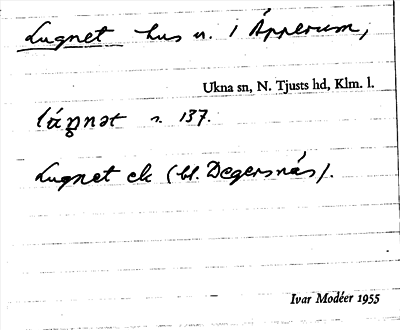 Lugnet hus u. i Äpperum,
Ukna sn, N. Tjusts hd, Klm. l.
s. 137.
Lugnet ek (bl. Degersnäs).
Ivar Modéer 1955